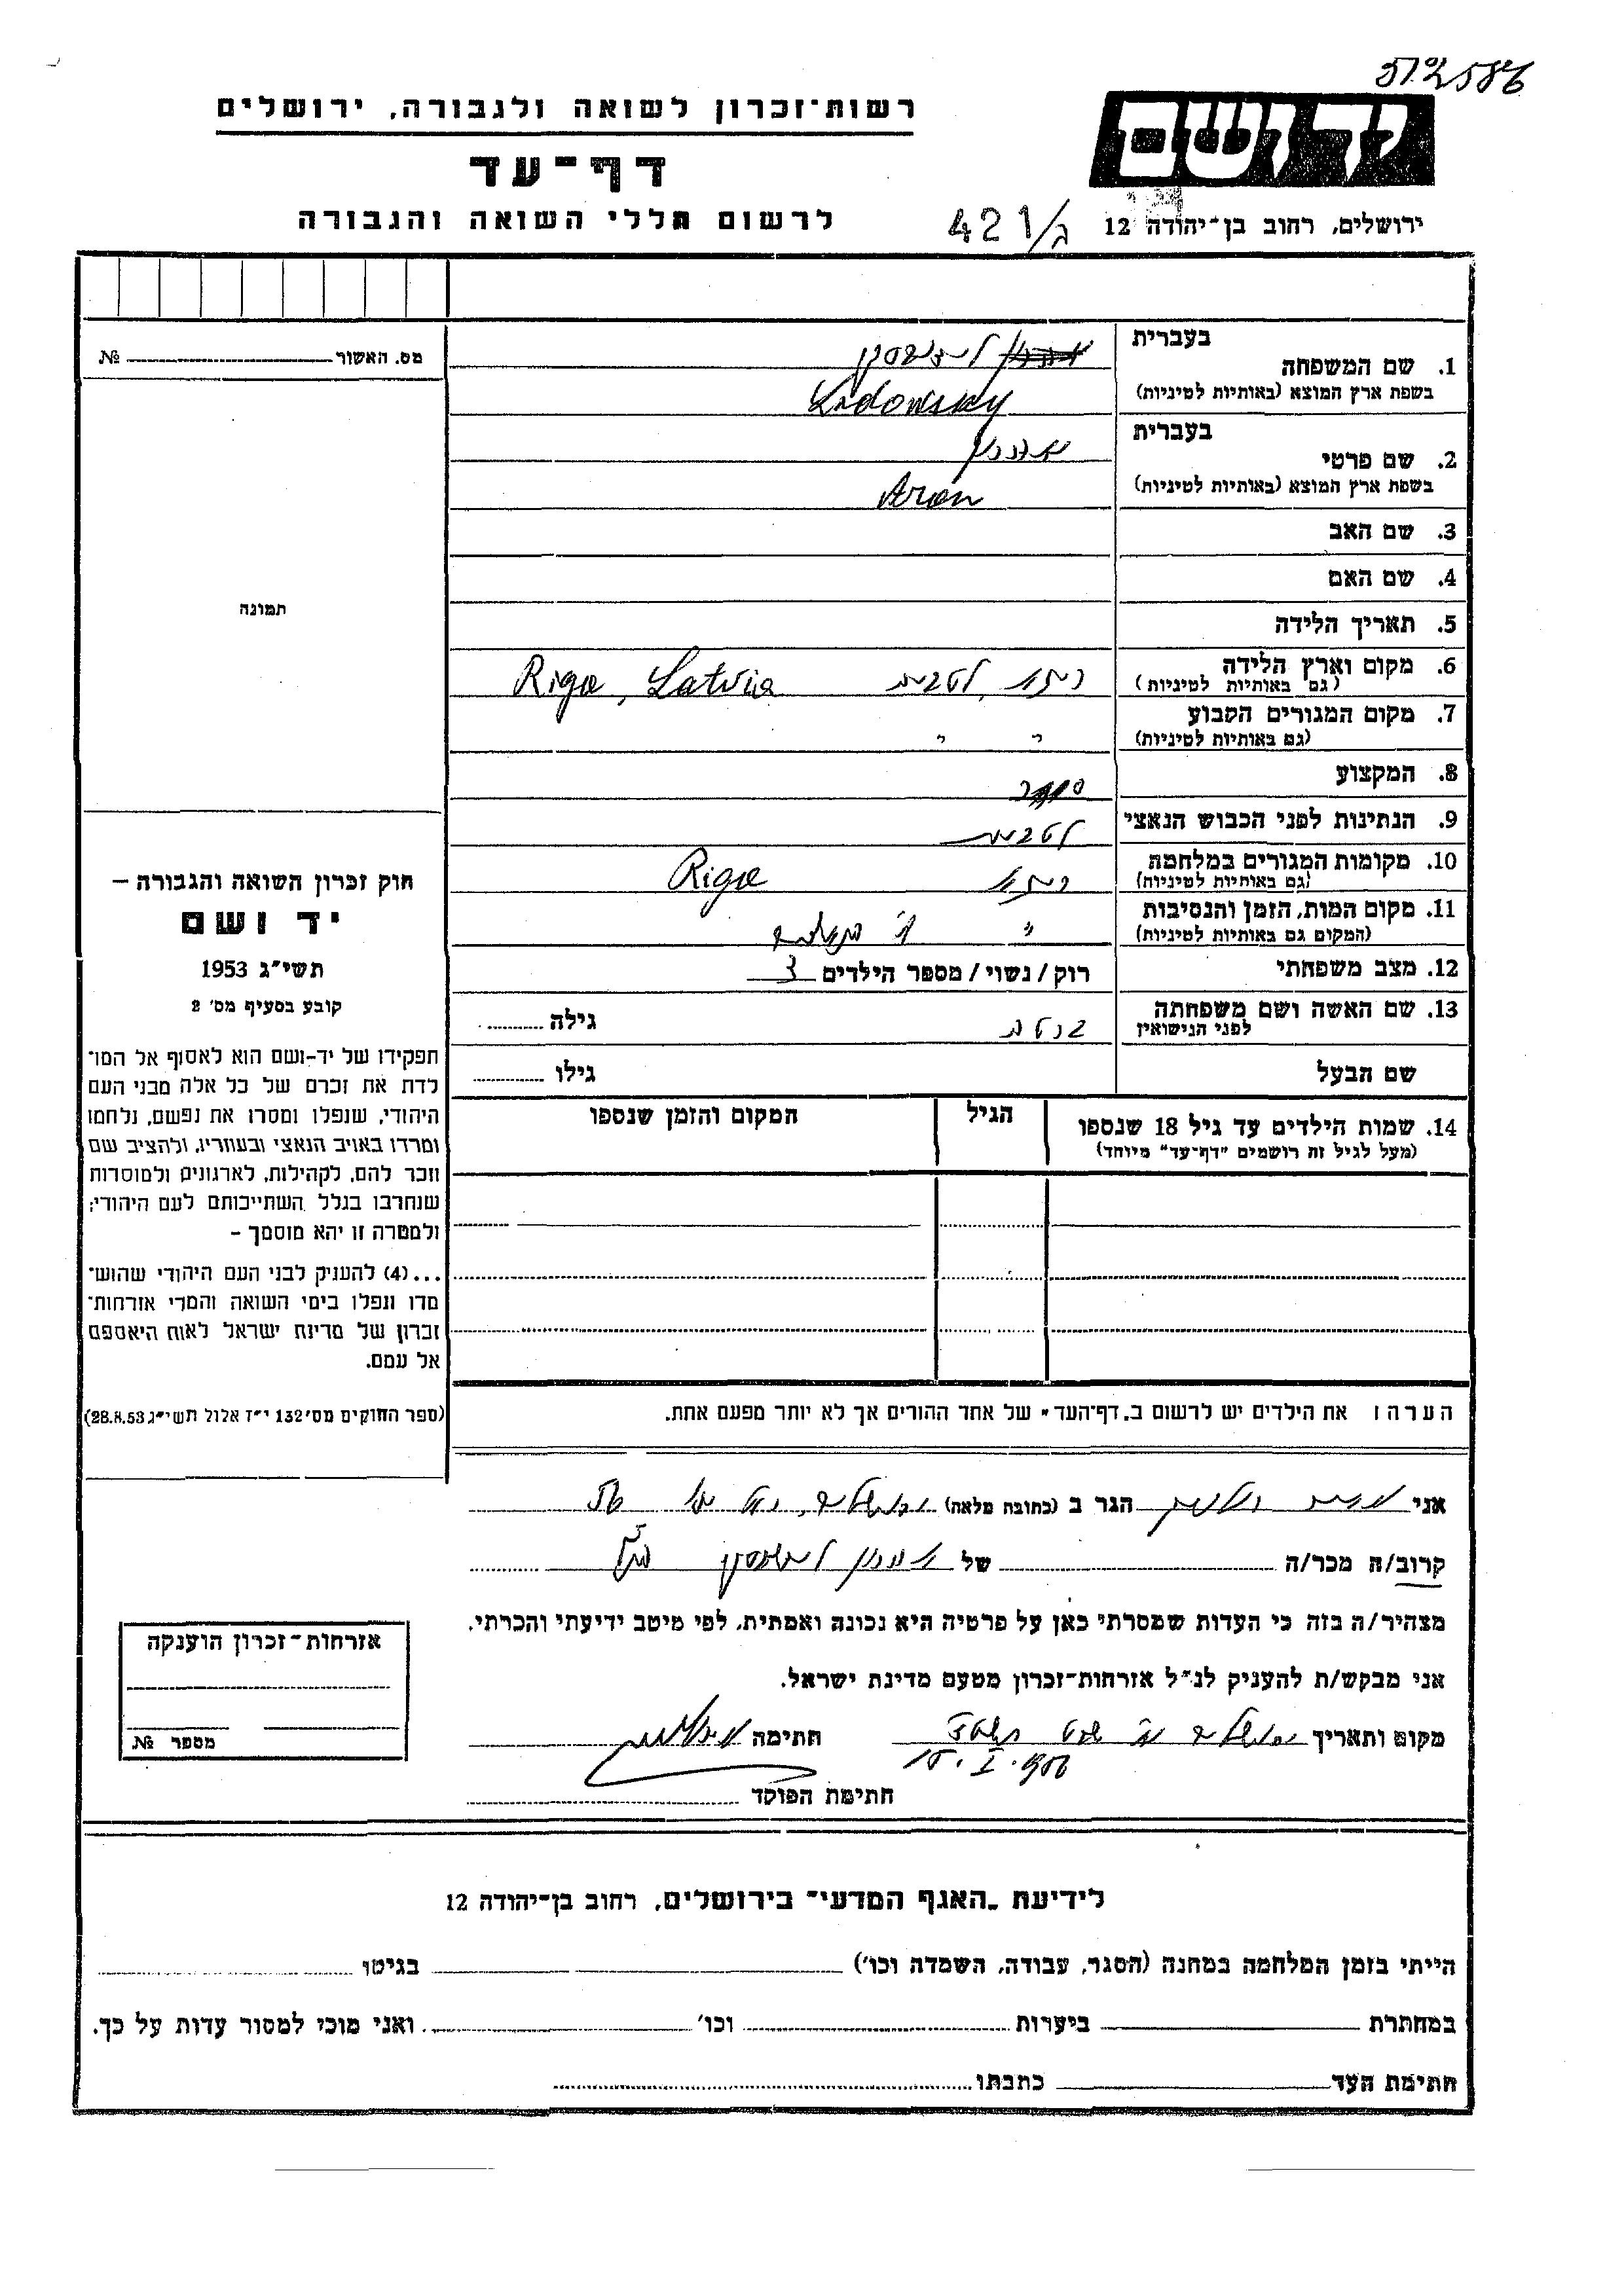 רשות־זכרון לשואה ולגבורה, ירושלים
דף־עד
לרשום חללי השואה והגבורה
יד ושם
ירושלים, רחוב בן־יהודה 12
421/ג
מס. האשור № 
בעברית
1. שם המשפחה
בשפת ארץ המוצא (באותיות לטיניות) Lidowsky
בעברית
2. שם פרטי אהרון
בשפת ארץ המוצא (באותיות לטיניות) Aron
3. שם האב
4. שם האם
5. תאריך הלידה
6. מקום וארץ הלידה ריגה, לטביה Riga, Latvia
(גם באותיות לטיניות)
7. מקום המגורים הקבוע " "
(גם באותיות לטיניות)
8. המקצוע סוחר
9. הנתינות לפני הכבוש הנאצי לטבית
10. מקומות המגורים במלחמה ריגה Riga
(גם באותיות לטיניות)
11. מקום המות, הזמן והנסיבות "
(המקום גם באותיות לטיניות)
12. מצב משפחתי רוק/נשוי/מספר הילדים 3
13. שם האשה ושם משפחתה גילה
לפני הנישואין
שם הבעל גילו
14. שמות הילדים עד גיל 18 שנספו הגיל המקום והזמן שנספו
(מעל לגיל זה רושמים "דף־עד" מיוחד)
הערה: את הילדים יש לרשום ב„דף־העד" של אחד ההורים אך לא יותר מפעם אחת.
תמונה
חוק זכרון השואה והגבורה –
יד ושם
תשי"ג 1953
קובע בסעיף מס' 2
תפקידו של יד-ושם הוא לאסוף אל המו־
לדת את זכרם של כל אלה מבני העם
היהודי, שנפלו ומסרו את נפשם, נלחמו
ומרדו באויב הנאצי ובעוזריו, ולהציב שם
וזכר להם, לקהילות, לארגונים ולמוסדות
שנחרבו בגלל השתייכותם לעם היהודי;
ולמטרה זו יהא מוסמך –
...(4) להעניק לבני העם היהודי שהוש־
מדו ונפלו בימי השואה והמרי אזרחות־
זכרון של מדינת ישראל לאות היאספם
אל עמם.
(ספר החוקים מס' 132 י"ז אלול תשי"ג 28.8.53)
אני הגר ב (כתובת מלאה) ירושלים,
קרוב/ה מכר/ה של אהרון
מצהיר/ה בזה כי העדות שמסרתי כאן על פרטיה היא נכונה ואמתית, לפי מיטב ידיעתי והכרתי.
אני מבקש/ת להעניק לנ"ל אזרחות־זכרון מטעם מדינת ישראל.
מקום ותאריך ירושלים חתימה
חתימת הפוקד
אזרחות־זכרון הוענקה
מספר №
לידיעת „האגף המדעי" בירושלים, רחוב בן־יהודה 12
הייתי בזמן המלחמה במחנה (הסגר, עבודה, השמדה וכו') בגיטו
במחתרת ביערות וכו' ואני מוכן למסור עדות על כך.
חתימת העד כתבתו